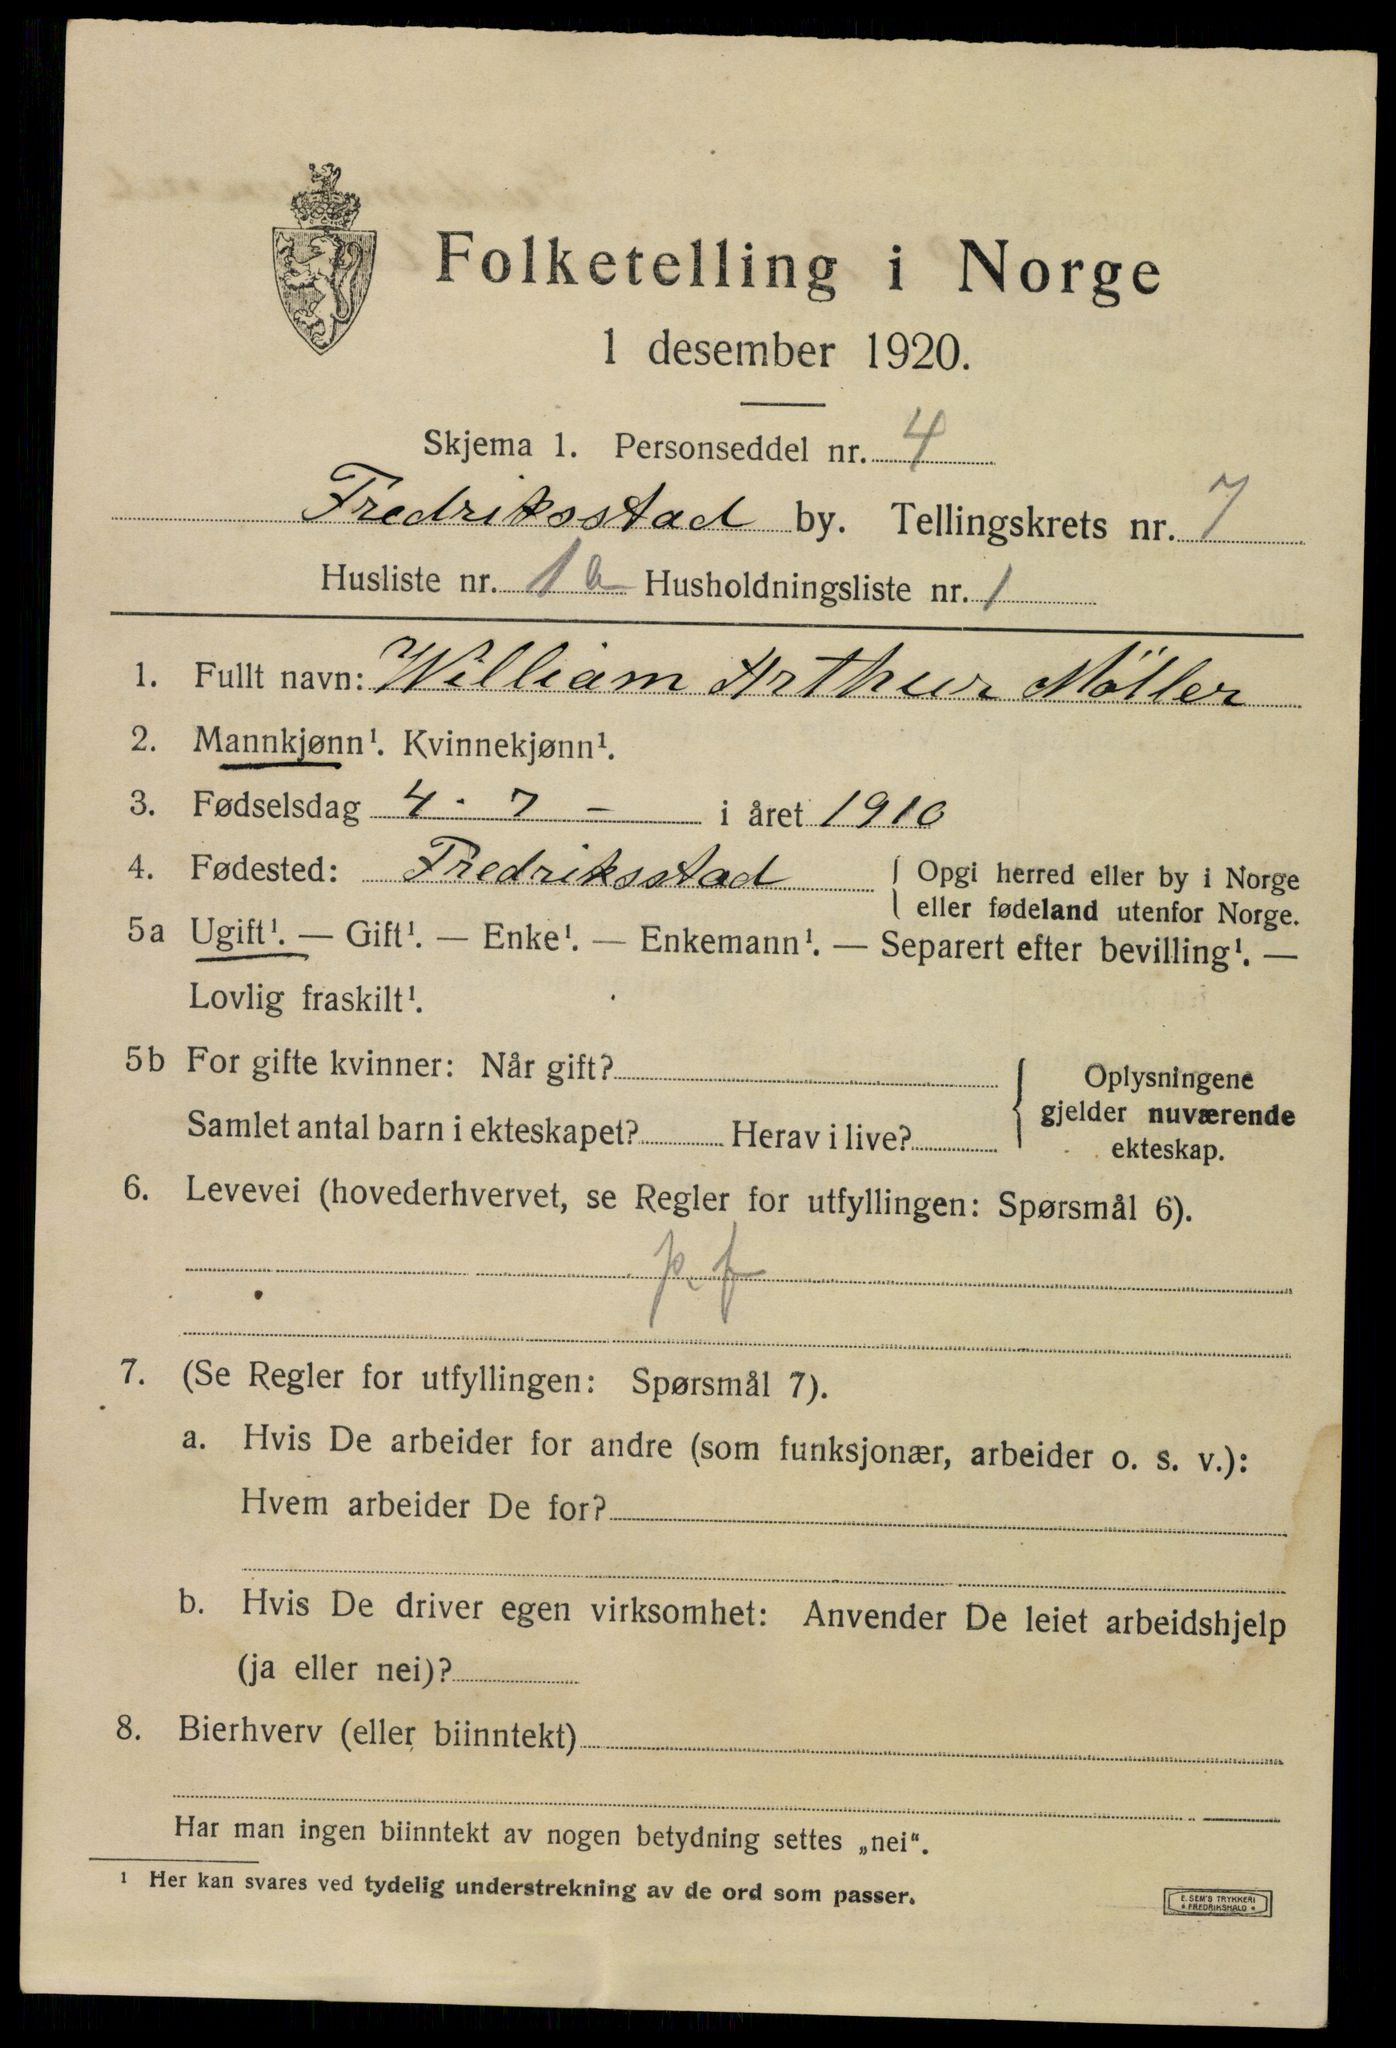 Folketelling i Norge
1 desember 1920.
Skjema 1. Personseddel nr. 4
Fredriksstad by. Tellingskrets nr. 7
Husliste nr. 1a Husholdningsliste nr. 1
1. Fullt navn: William Arthur Möller
2. Mannkjønn¹. Kvinnekjønn¹.
3. Fødselsdag 4. 7 – i året 1910
4. Fødested: Fredriksstad { Opgi herred eller by i Norge
eller fødeland utenfor Norge.
5a Ugift¹. — Gift¹. — Enke¹. — Enkemann¹. — Separert efter bevilling¹. —
Lovlig fraskilt¹.
5b For gifte kvinner: Når gift?
Samlet antal barn i ekteskapet? Herav i live?
{ Oplysningene
gjelder nuværende
ekteskap.
6. Levevei (hovederhvervet, se Regler for utfyllingen: Spørsmål 6).
p. f
7. (Se Regler for utfyllingen: Spørsmål 7).
a. Hvis De arbeider for andre (som funksjonær, arbeider o. s. v.):
Hvem arbeider De for?
b. Hvis De driver egen virksomhet: Anvender De leiet arbeidshjelp
(ja eller nei)?
8. Bierhverv (eller biinntekt)
Har man ingen biinntekt av nogen betydning settes „nei“.
¹ Her kan svares ved tydelig understrekning av de ord som passer.
E. SEM'S TRYKKERI
* FREDRIKSHALD *